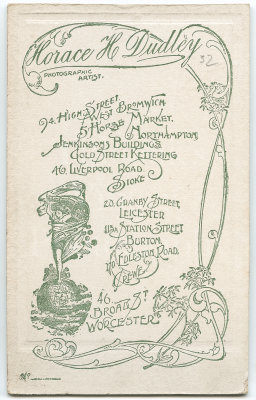 Horace H Dudley
32
PHOTOGRAPHIC
ARTIST.
94. HIGH STREET
WEST BROMWICH
5 HORSE MARKET,
NORTHAMPTON
JENKINSONS BUILDINGS
GOLD STREET KETTERING
40. LIVERPOOL ROAD
STOKE
20. GRANBY STREET,
LEICESTER
118A STATION STREET
BURTON.
EDLESTON ROAD,
CREWE
46.
BROAD ST
WORCESTER